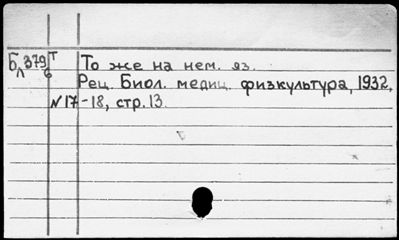 Б 379 Т То же на нем. яз.
л б Рец. Биол. медиц. физкультура, 1932,
N17-18, стр. 13.